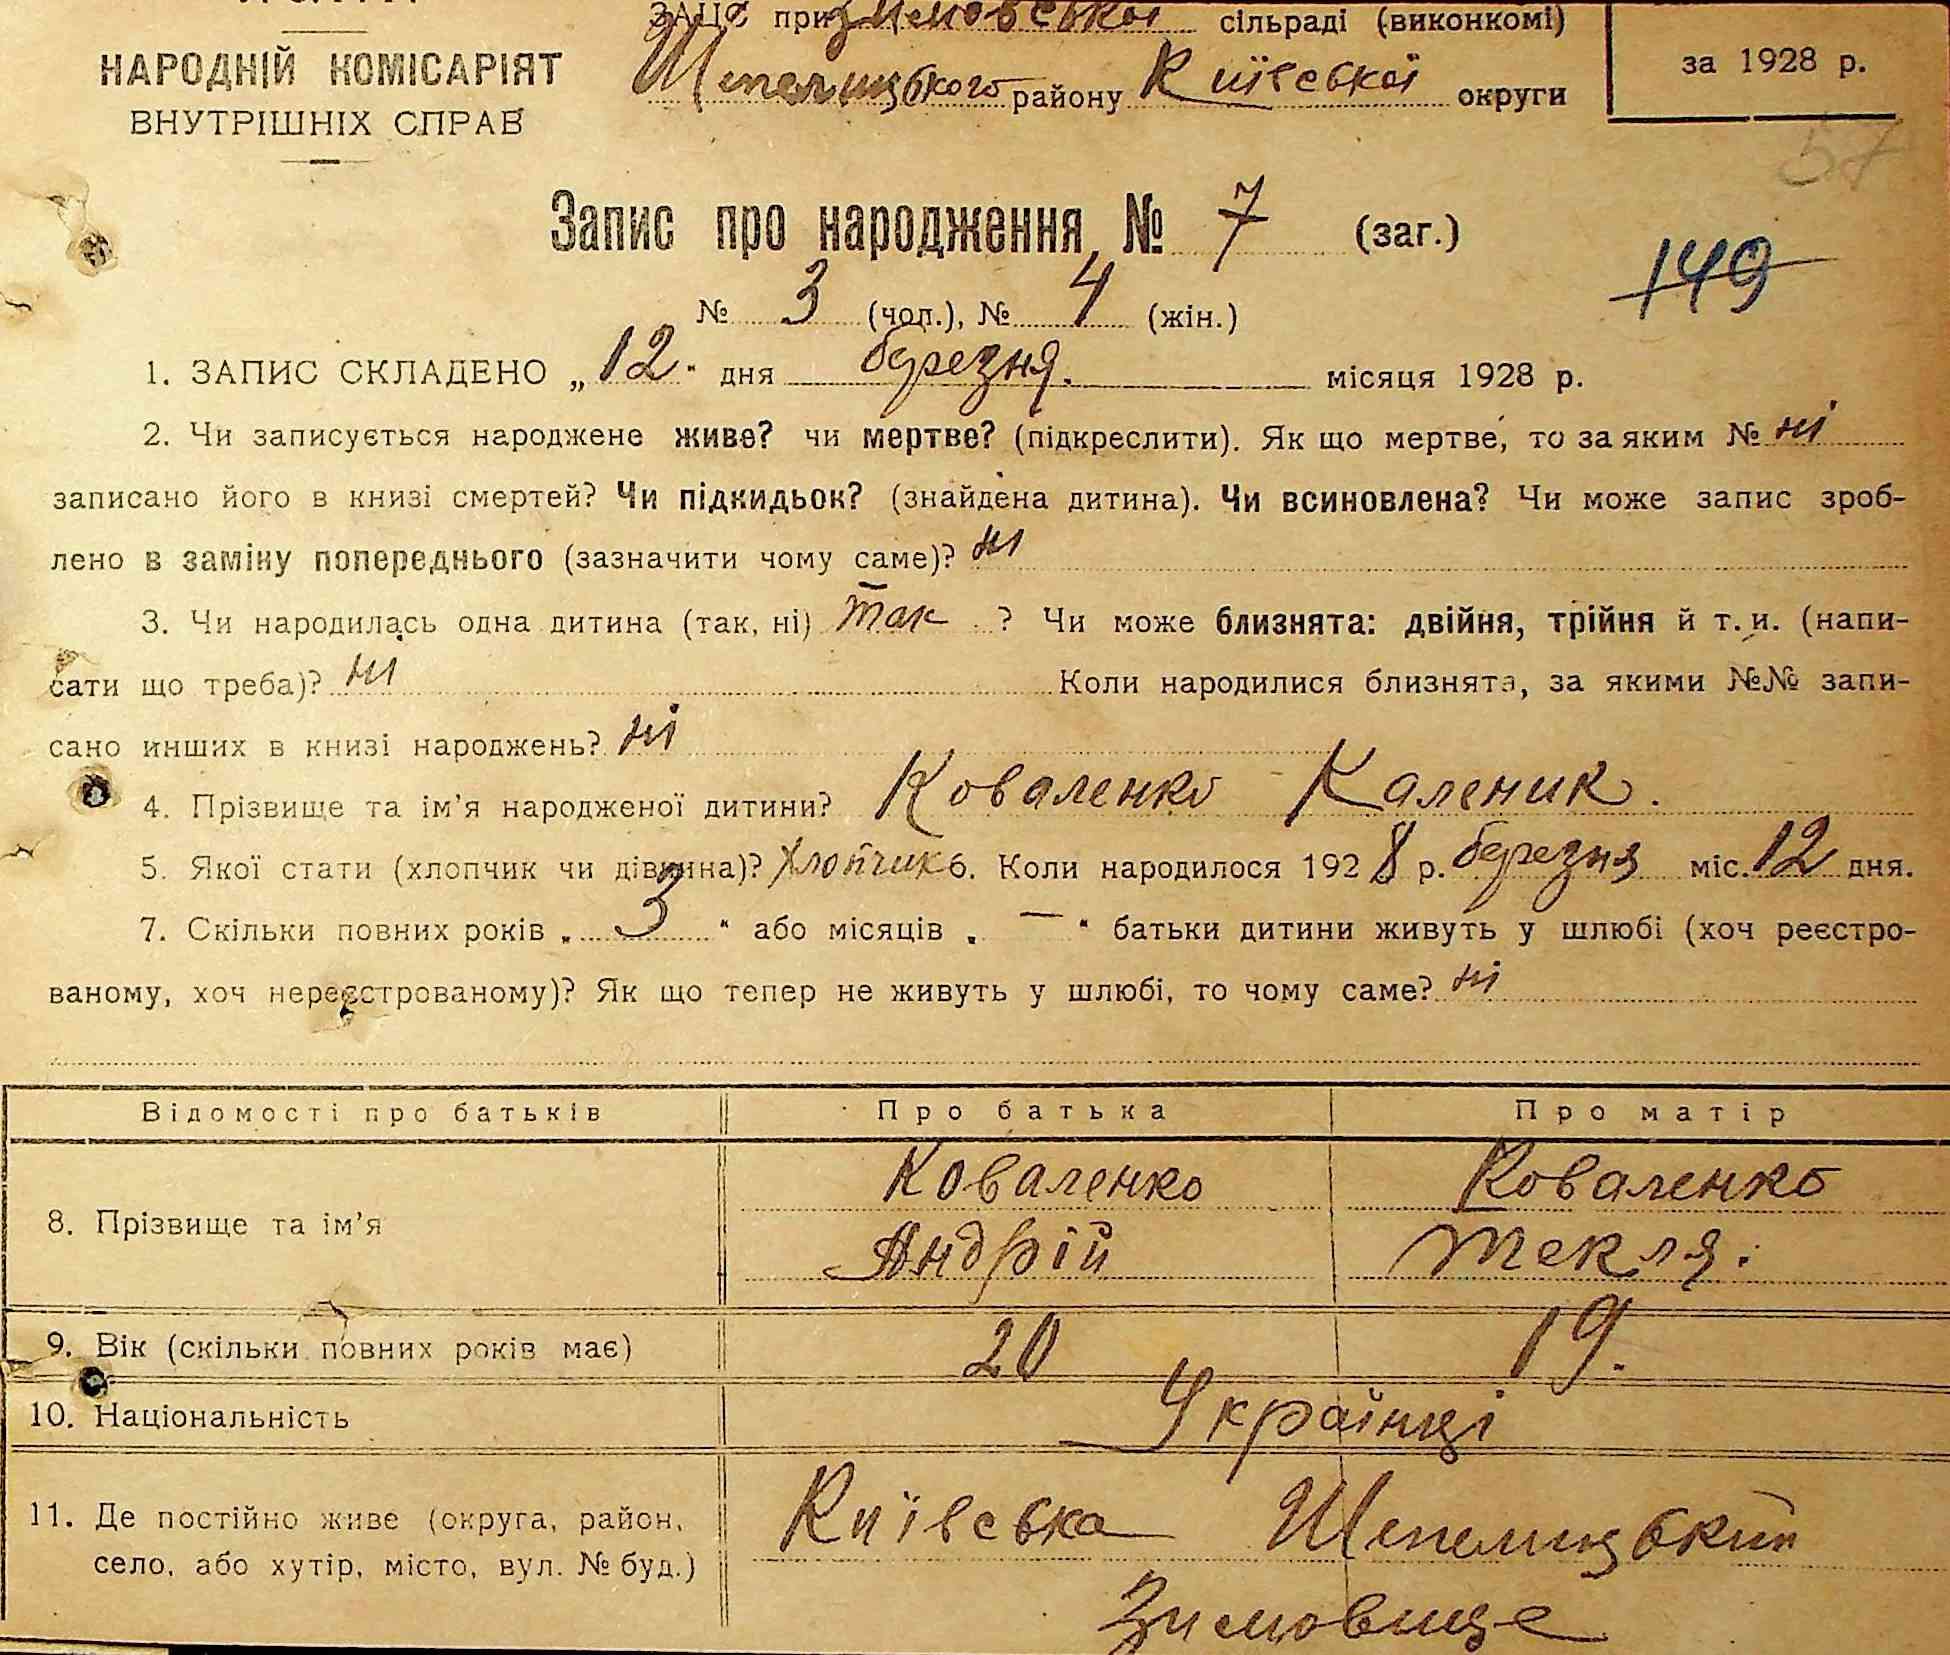 ЗАЦС при Зимовської сільраді (виконкомі)
НАРОДНІЙ КОМІСАРІЯТ
ВНУТРІШНІХ СПРАВ
Шепелицького району Київської округи
за 1928 р.
57
Запис про народження № 7 (заг.)
149
№ 3 (чол.), № 4 (жін.)
1. ЗАПИС СКЛАДЕНО „12" дня березня. місяця 1928 р.
2. Чи записується народжене живе? чи мертве? (підкреслити). Як що мертве, то за яким № ні
записано його в книзі смертей? Чи підкидьок? (знайдена дитина). Чи всиновлена? Чи може запис зроб-
лено в заміну попереднього (зазначити чому саме)? ні
3. Чи народилась одна дитина (так, ні) так ? Чи може близнята: двійня, трійня й т. и. (напи-
сати що треба)? ні Коли народилися близнята, за якими №№ запи-
сано инших в книзі народжень? ні
4. Прізвище та ім'я народженої дитини? Коваленко Каленик.
5. Якої стати (хлопчик чи дівчина)? Хлопчик 6. Коли народилося 1928 р. березня міс. 12 дня.
7. Скільки повних років „ 3 " або місяців „ — " батьки дитини живуть у шлюбі (хоч реєстро-
ваному, хоч нереєстрованому)? Як що тепер не живуть у шлюбі, то чому саме? ні
Відомості про батьків Про батька Про матір
8. Прізвище та ім'я
Коваленко Коваленко
Андрій Текля.
9. Вік (скільки повних років має) 20 19.
10. Національність Українці
11. Де постійно живе (округа, район,
село, або хутір, місто, вул. № буд.)
Київська Шепелицький
Зимовище